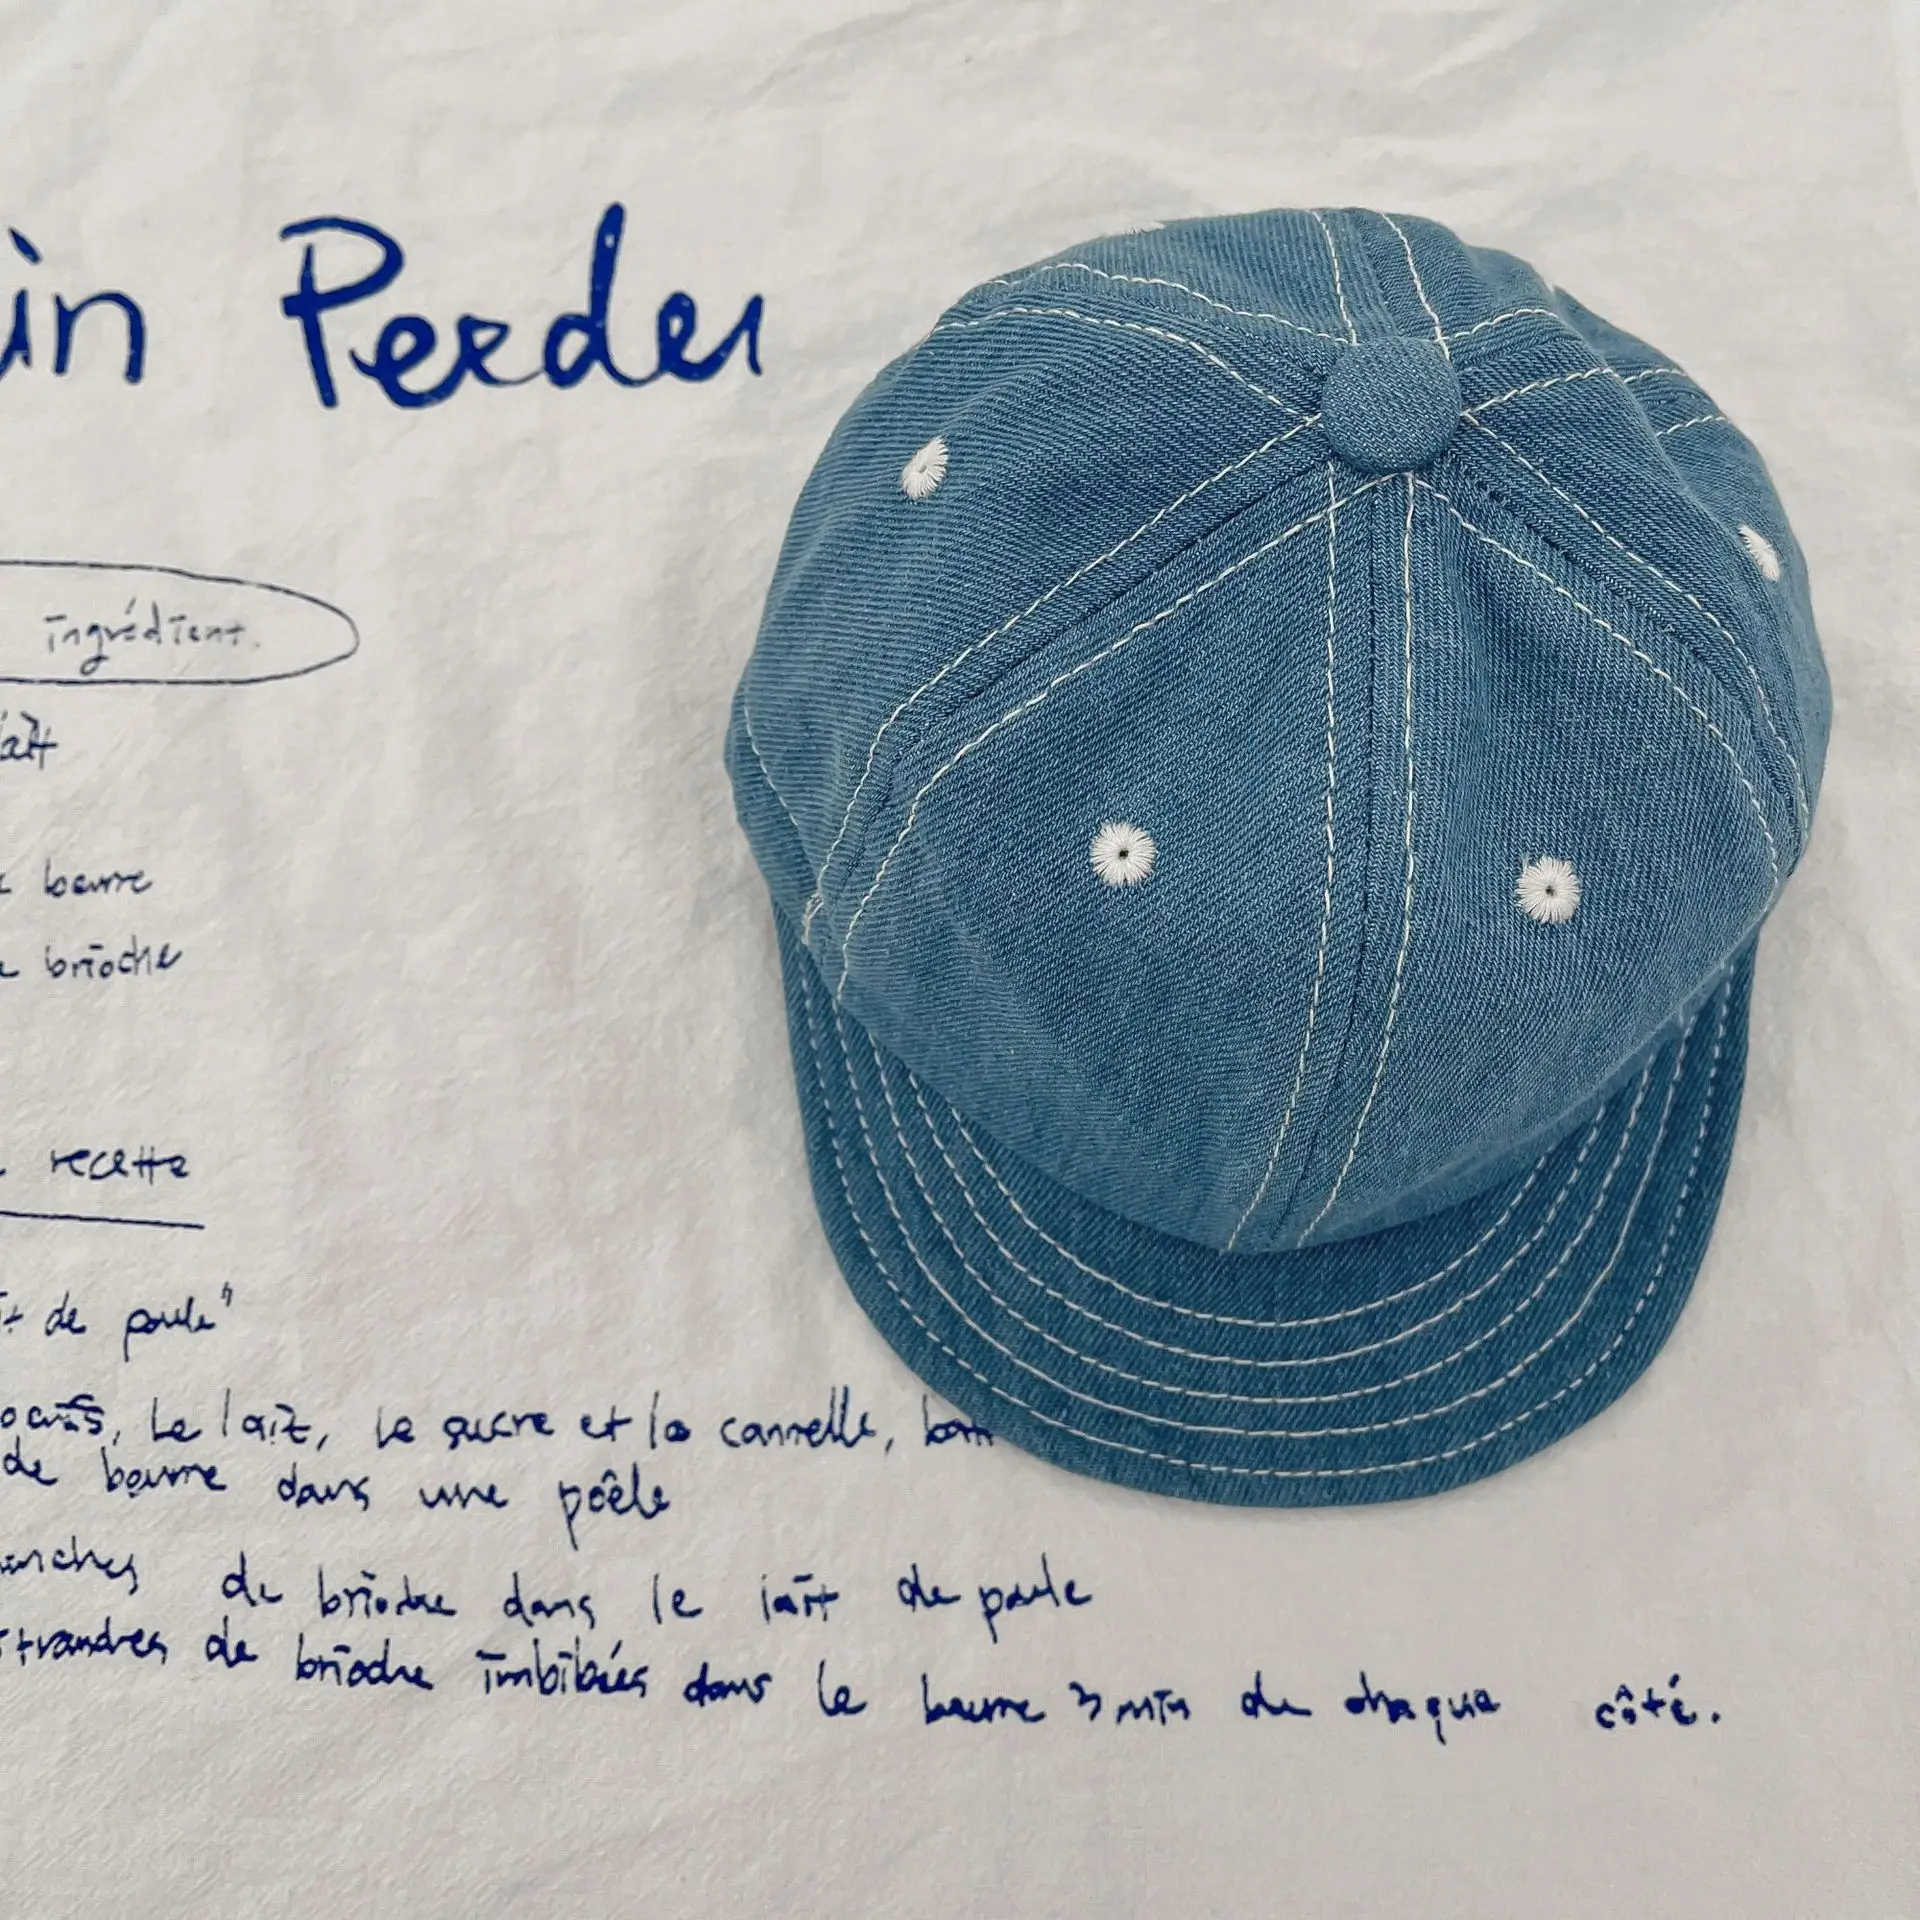 in Perdu
ingrédient.
lait
beurre
brioche
recette
de poule"
oeufs, le lait, le sucre et la cannelle, batt
de beurre dans une poêle
anches de brioche dans le lait de poule
tranches de brioche imbibées dans le beurre 3 min de chaque côté.